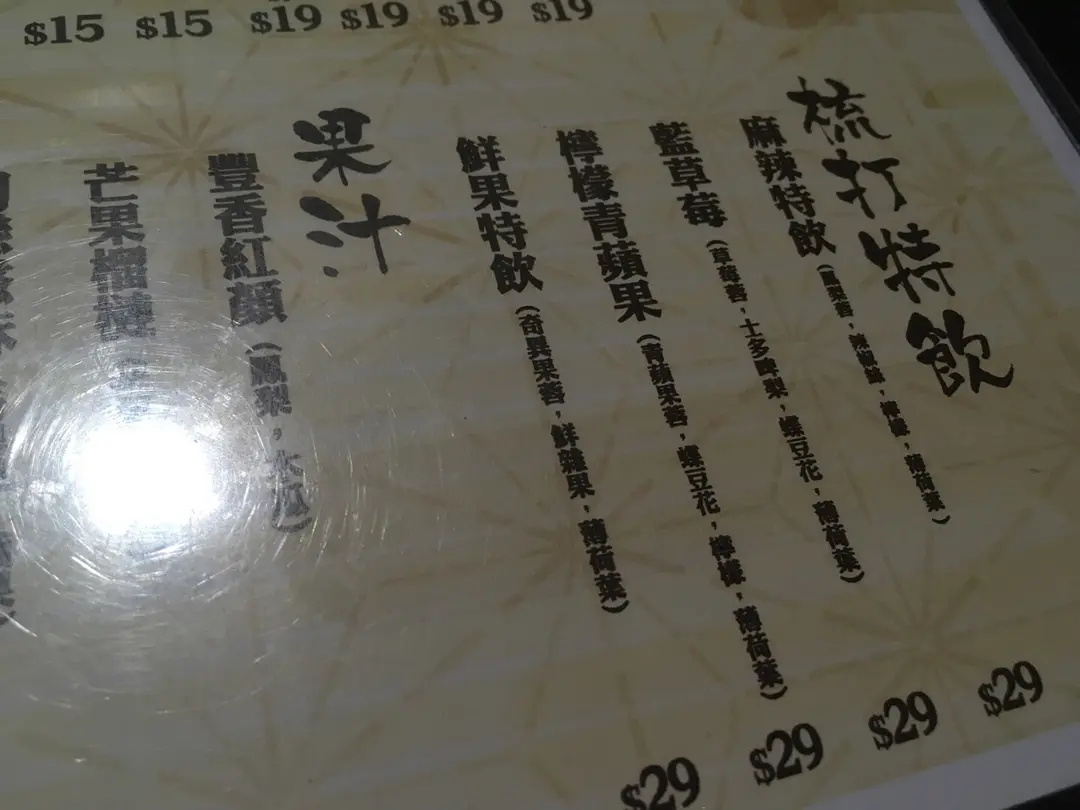 $15 $15 $19 $19 $19 $19
梳打特飲
麻辣特飲（鳳梨蓉，辣椒絲，檸檬，薄荷葉）
$29
藍草莓（草莓蓉，士多啤梨，蝶豆花，薄荷葉）
$29
檸檬青蘋果（青蘋果蓉，蝶豆花，檸檬，薄荷葉）
$29
鮮果特飲（奇異果蓉，鮮雜果，薄荷葉）
$29
果汁
豐香紅顏（鳳梨，木瓜）
芒果榴槤